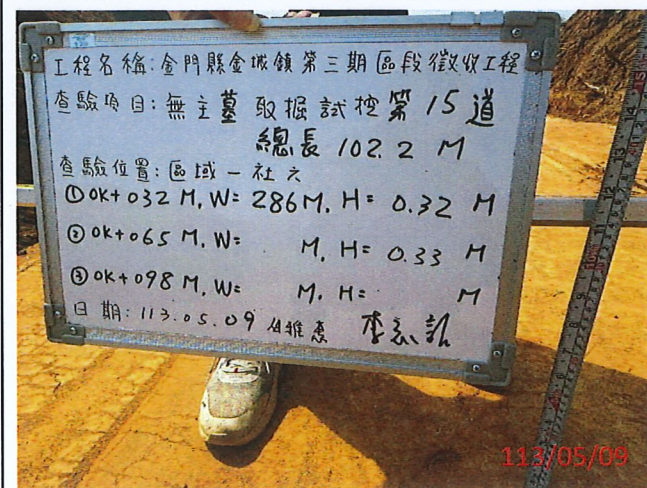 工程名稱:金門縣金城鎮第三期區段徵收工程
查驗項目:無主墓取掘試挖第15道
總長102.2 M
查驗位置:區域一社六
①0K+032 M, W= 286M, H= 0.32 M
②0K+065 M, W= M, H= 0.33 M
③0K+098 M, W= M, H= M
日期:113.05.09
113/05/09